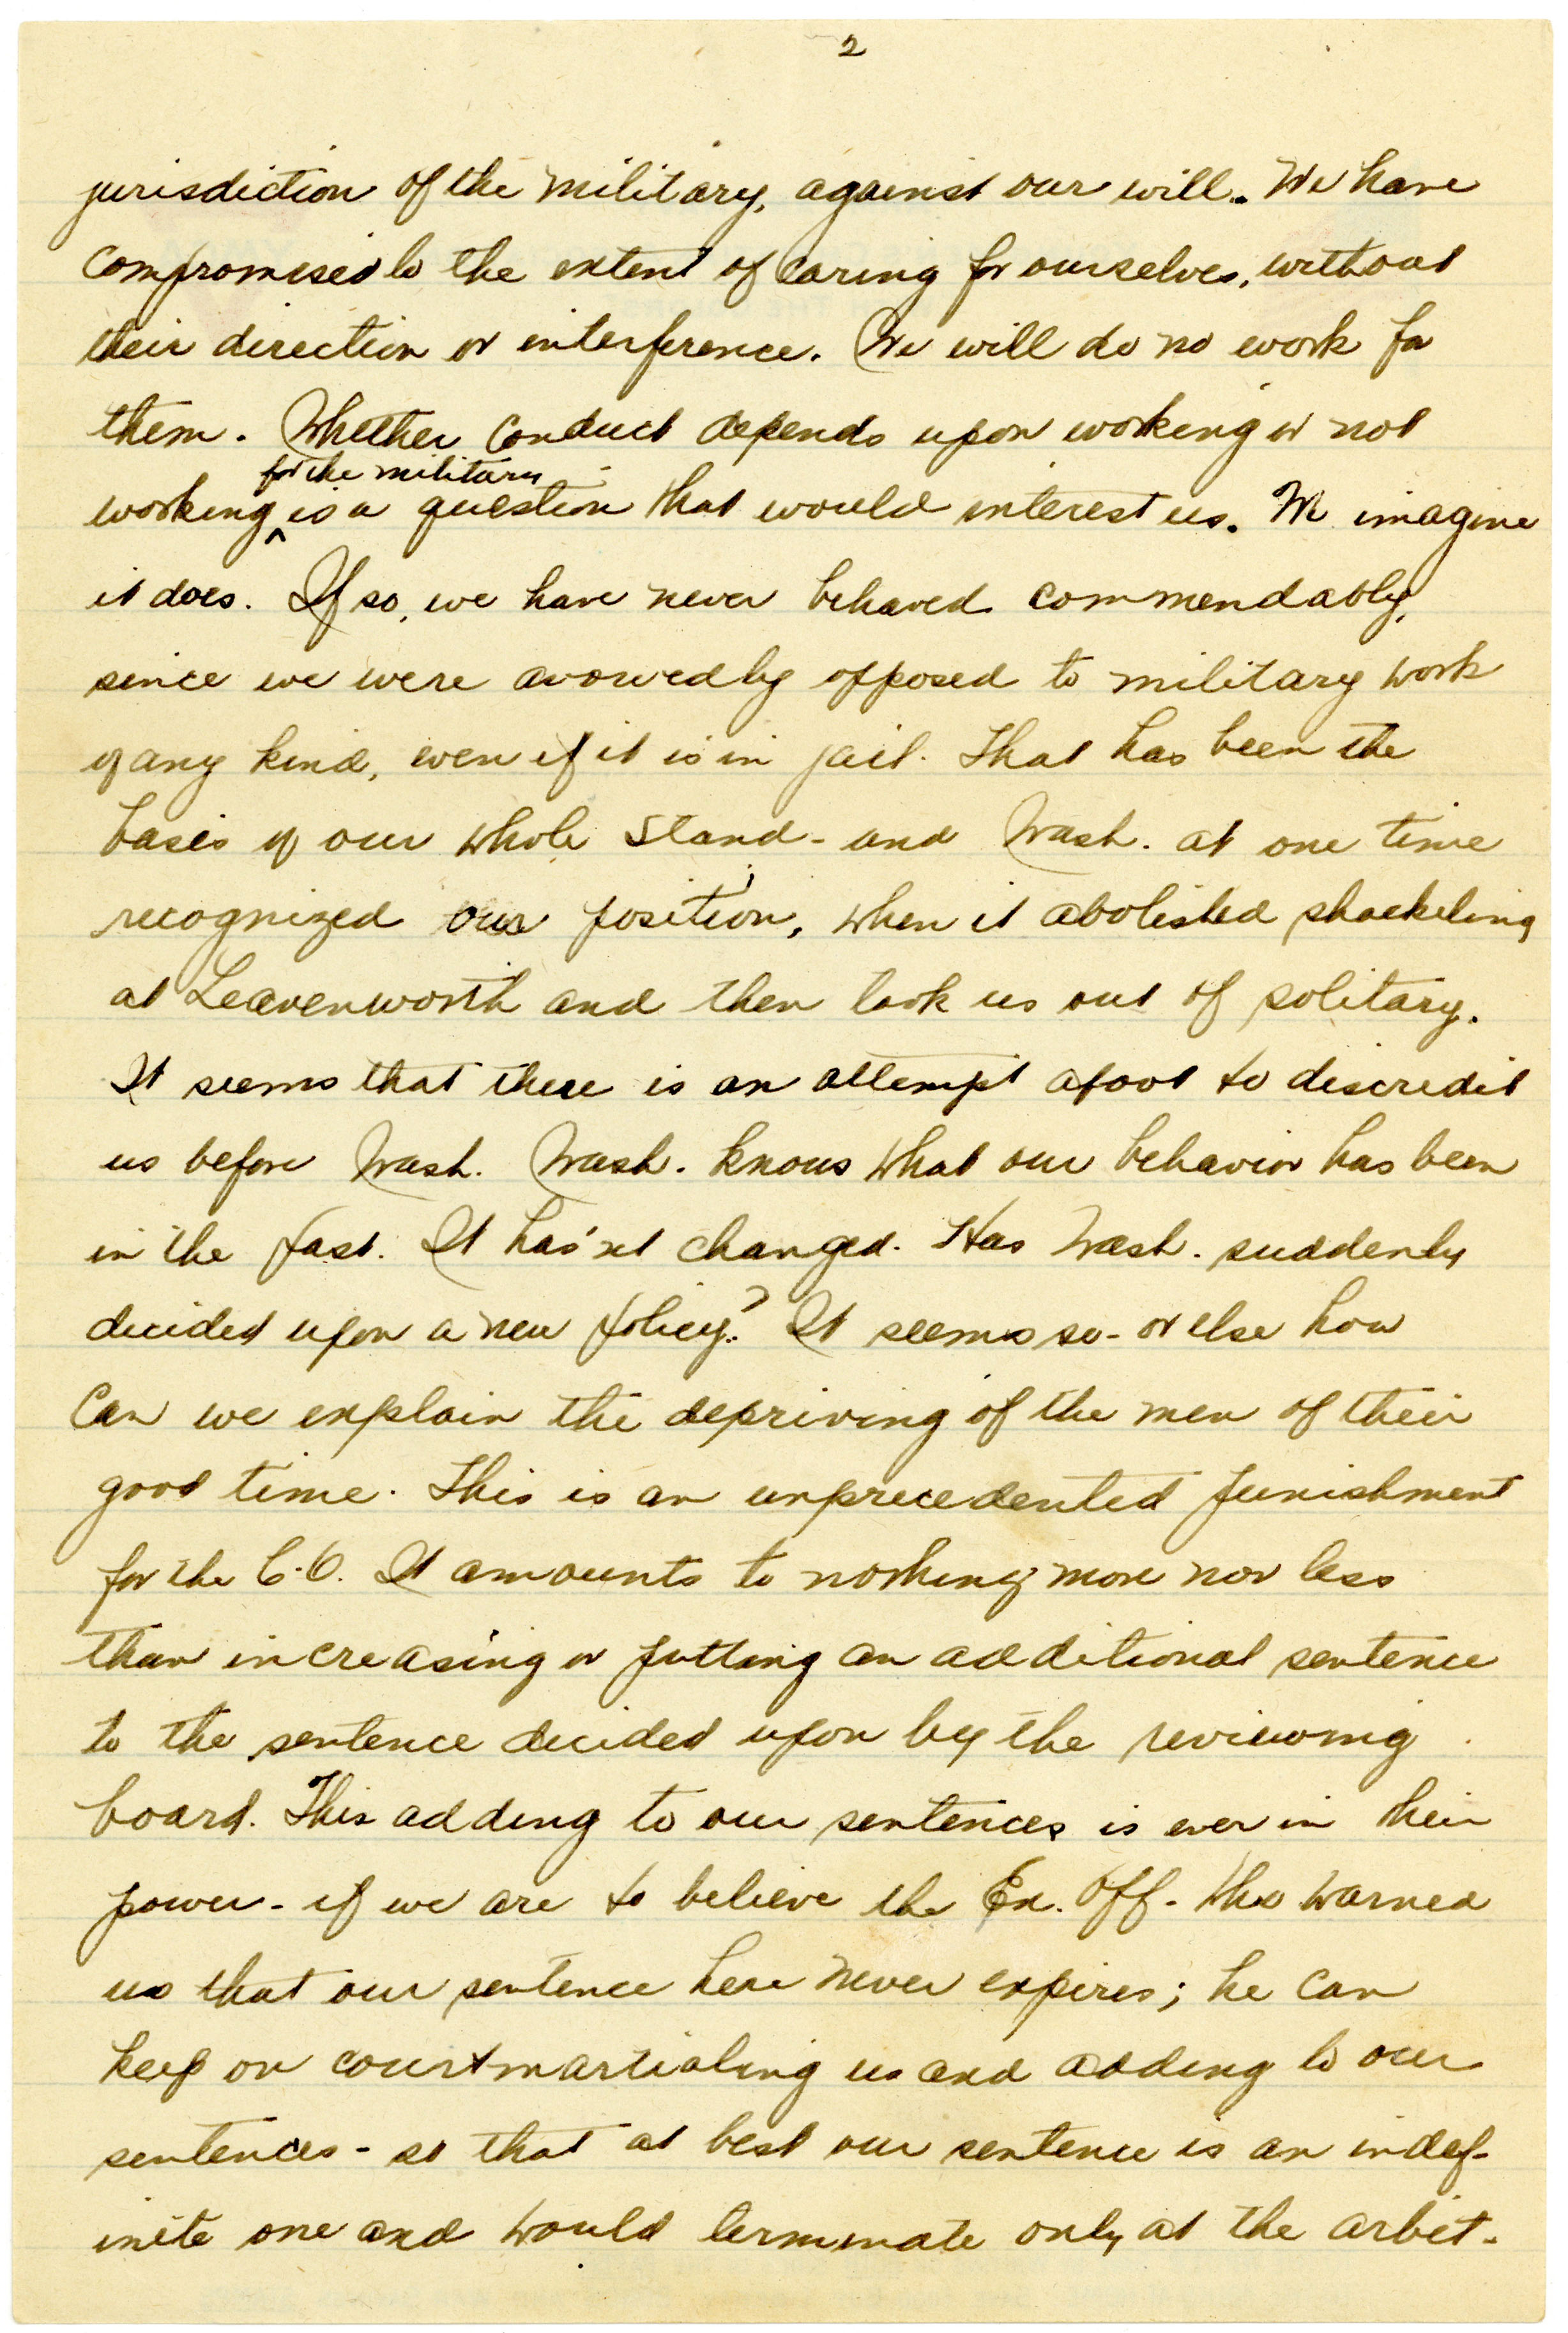 2
jurisdiction of the military, against our will. We have
compromised to the extent of caring for ourselves, without
their direction or interference. We will do no work for
them. Whether conduct depends upon working or not
for the military
working ^ is a question that would interest us. We imagine
it does. If so, we have never behaved commendably,
since we were avowedly opposed to military work
of any kind, even if it is in jail. That has been the
basis of our whole stand - and Wash. at one time
recognized our position, when it abolished shackeling
at Leavenworth and then took us out of solitary.
It seems that there is an attempt afoot to discredit
us before Wash. Wash. knows what our behavior has been
in the past. It has'nt changed. Has Wash. suddenly
decided upon a new policy? It seems so - or else how
can we explain the depriving of the men of their
good time. This is an unprecedented punishment
for the C.O. It amounts to nothing more nor less
than increasing or putting an additional sentence
to the sentence decided upon by the reviewing
board. This adding to our sentences is ever in their
power - if we are to believe the Ex. Off. - who warned
us that our sentence here never expires; he can
keep on courtmartialing us and adding to our
sentences - so that at best our sentence is an indef-
inite one and would terminate only at the arbit-